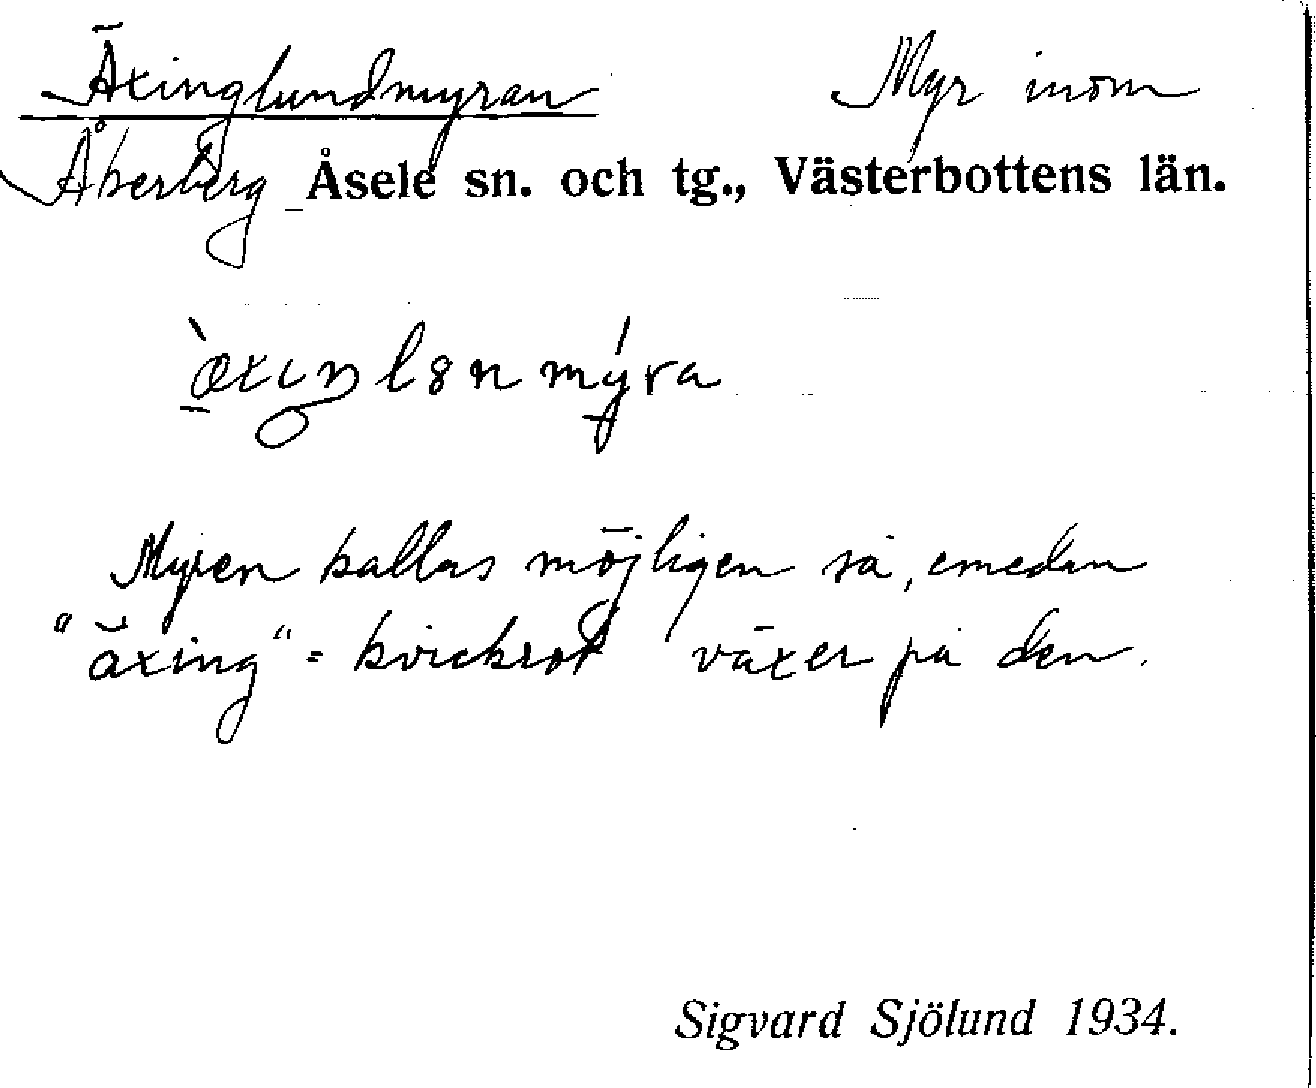 Äxinglundmyran Myr inom
Åkerberg Åsele sn. och tg., Västerbottens län.
Myren kallas möjligen så, emedan
"äxing" = kvickrot växer på den.
Sigvard Sjölund 1934.